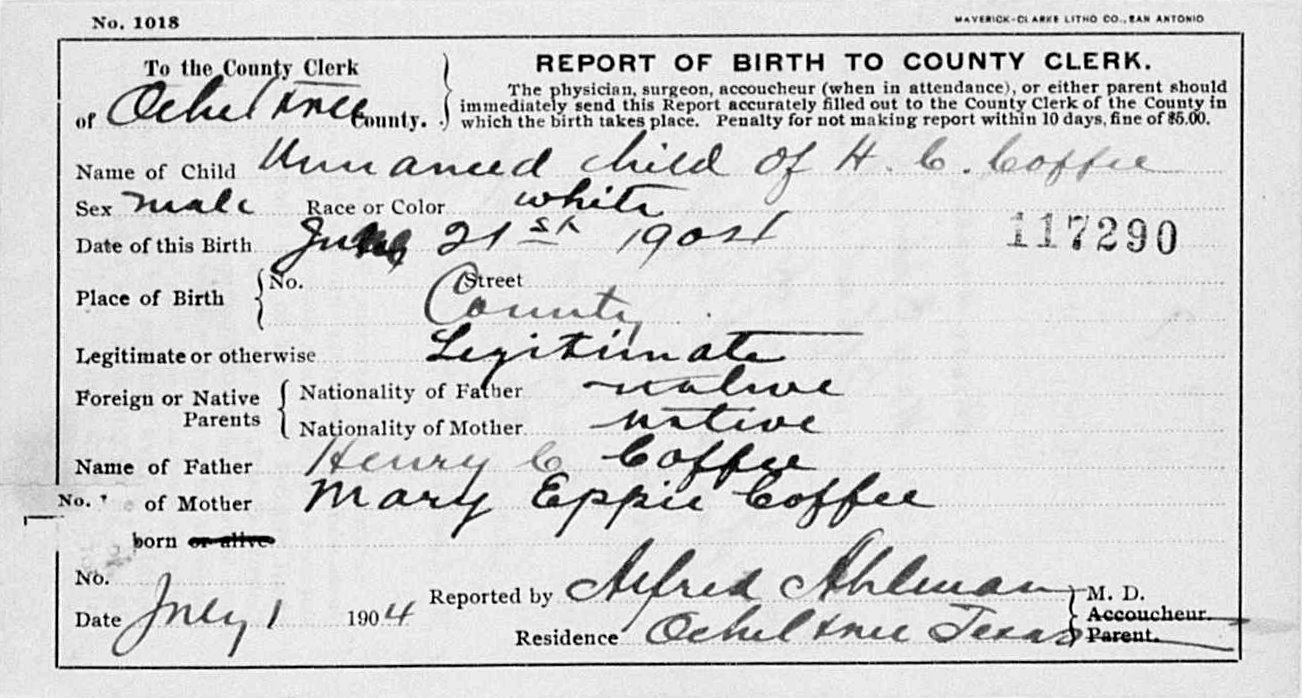 No. 1018
MAVERICK-CLARKE LITHO CO., SAN ANTONIO
To the County Clerk
of Ochiltree County.
REPORT OF BIRTH TO COUNTY CLERK.
The physician, surgeon, accoucheur (when in attendance), or either parent should
immediately send this Report accurately filled out to the County Clerk of the County in
which the birth takes place. Penalty for not making report within 10 days, fine of $5.00.
Name of Child Unnamed child of H. C. Coffee
Sex male Race or Color white
Date of this Birth June 21st 1904
117290
Place of Birth No. Street
County
Legitimate or otherwise Legitimate
Foreign or Native Parents
Nationality of Father native
Nationality of Mother native
Name of Father Henry C Coffee
No. of Mother Mary Eppie Coffee
born or alive
No.
Date July 1 1904
Reported by Alfred Ahlman M. D.
Accoucheur.
Residence Ochiltree Texas Parent.